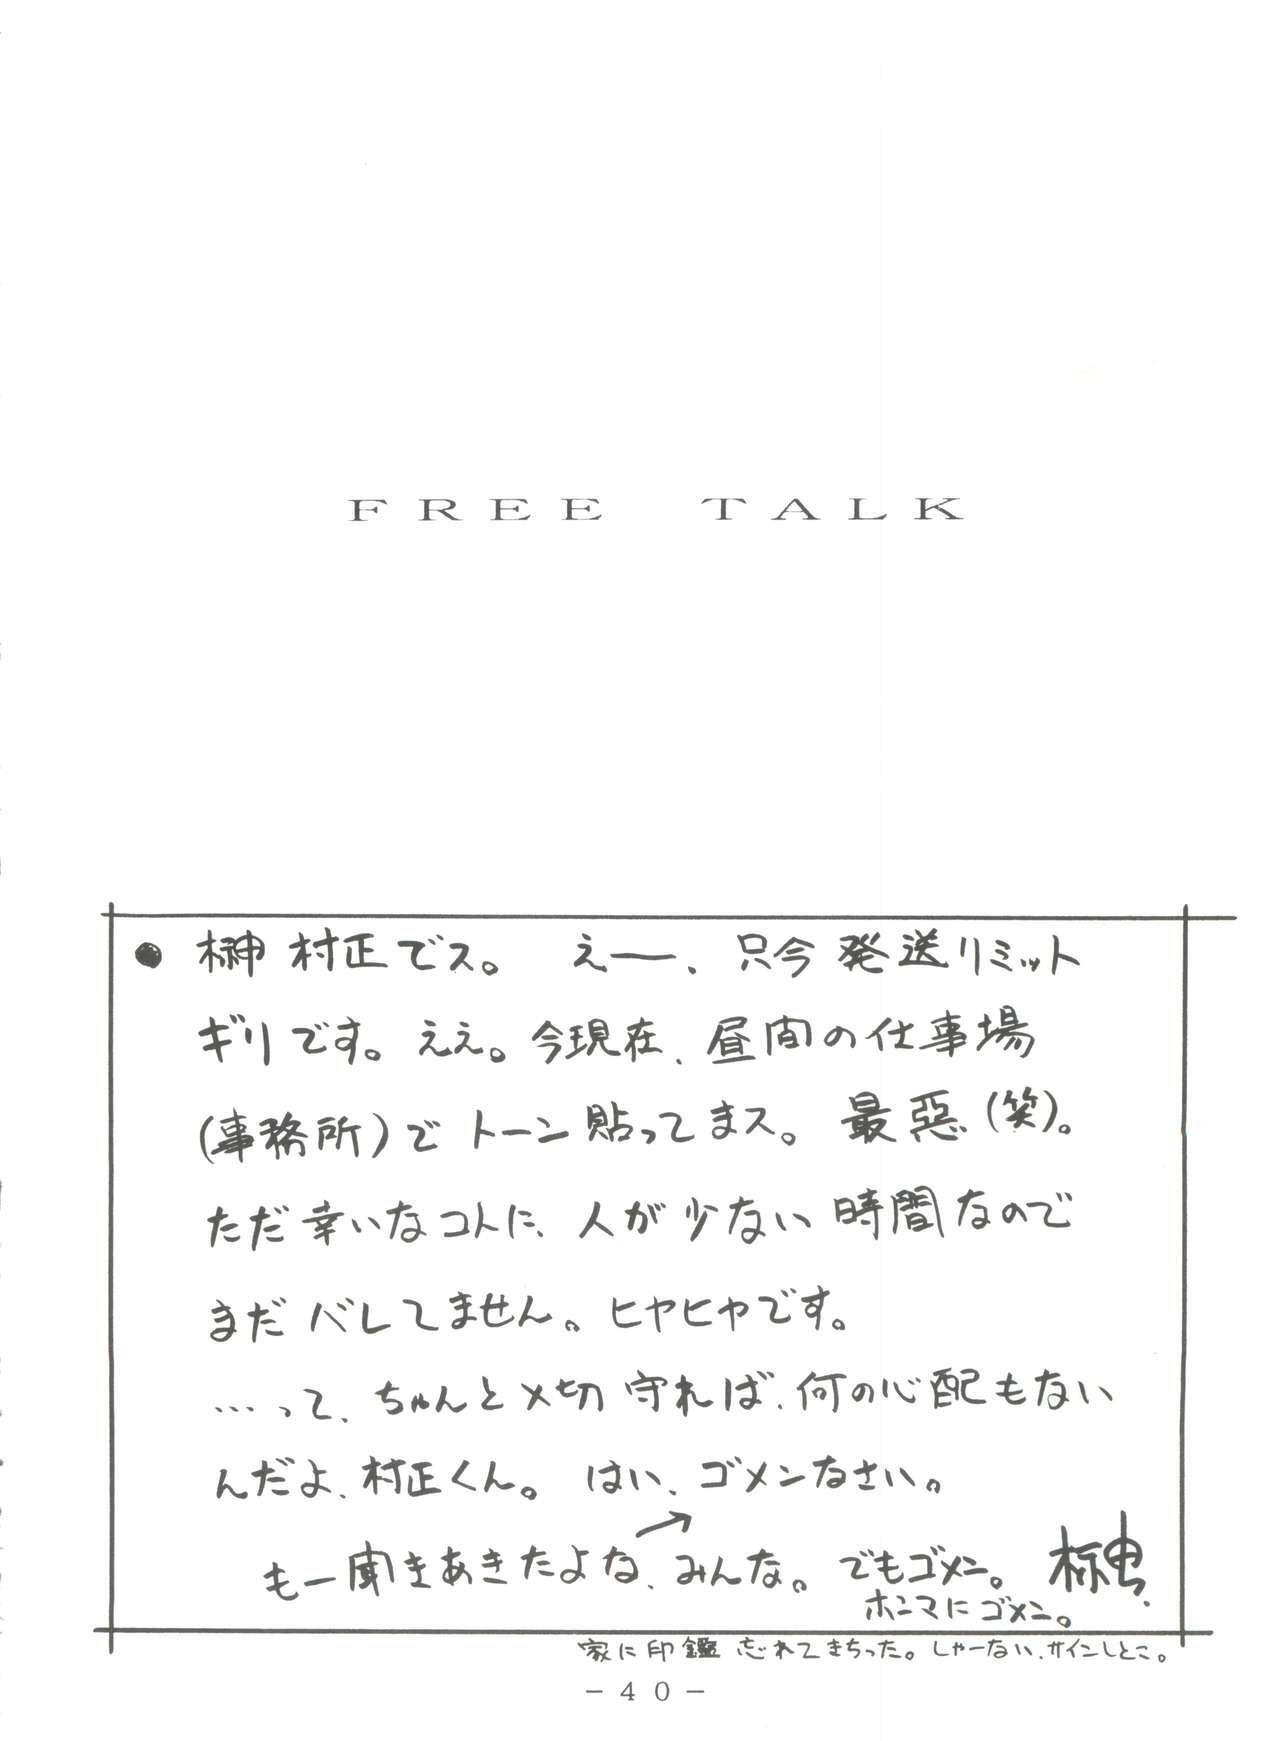 FREE TALK
● 榊 村正でス。 えー、只今 発送リミット
ギリです。ええ。今現在、昼間の仕事場
(事務所)で トーン貼ってまス。 最悪(笑)。
ただ幸いなコトに、人が少ない時間なので
まだバレてません。ヒヤヒヤです。
…って、ちゃんと〆切守れば、何の心配もない
んだよ、村正くん。 はい、ゴメンなさい。
もー聞きあきたよな、みんな。でもゴメン。 榊
ホンマにゴメン。
家に印鑑忘れてきちった。しゃーない、サインしとこ。
－40－